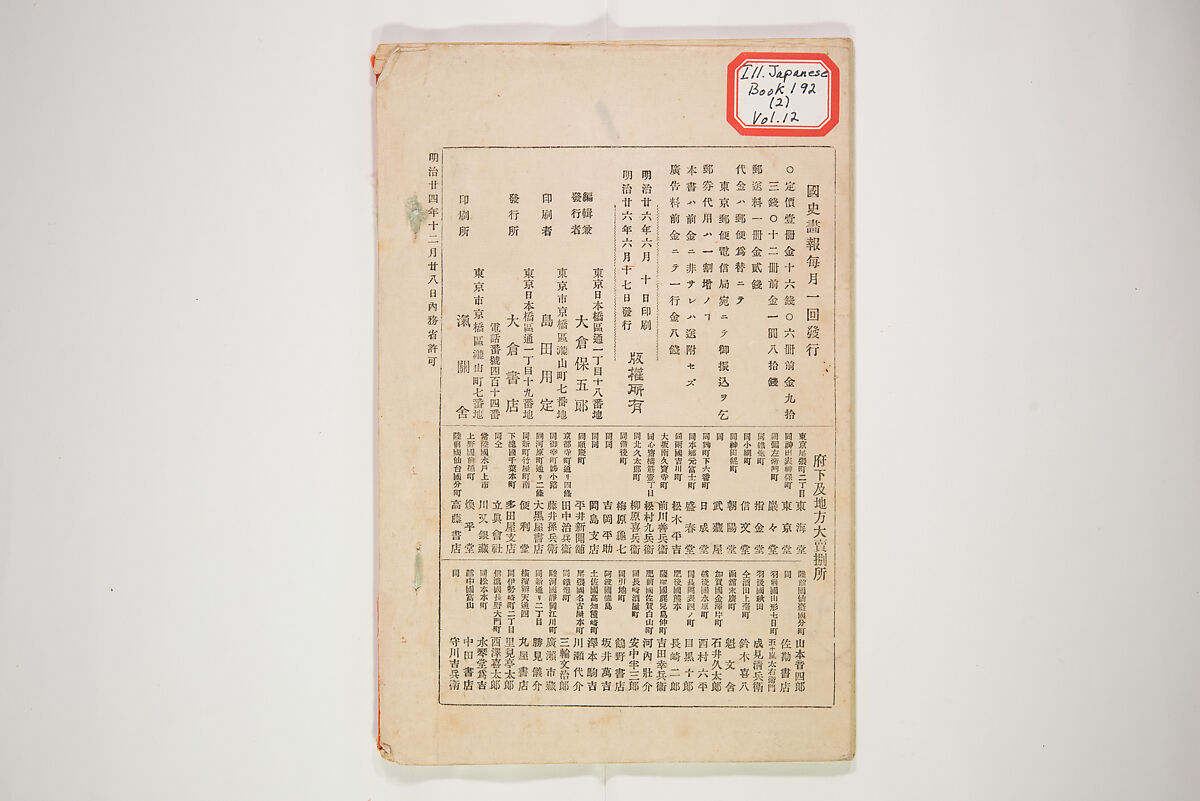 Ill. Japanese
Book 192
(2)
Vol. 12
國史畫報每月一回發行
○定價壹冊金十六錢○六冊前金九拾
三錢○十二冊前金一圓八拾錢
郵送料一冊金貳錢
代金ハ郵便爲替ニテ
東京郵便電信局宛ニテ御振込ヲ乞
郵劵代用ハ一割增ノヿ
本書ハ前金ニ非サレハ送附セズ
廣告料前金ニテ一行金八錢
明治廿六年六月十日印刷
明治廿六年六月十七日發行
版權所有
編輯兼發行者
東京日本橋區通一丁目十八番地
大倉保五郎
印刷者
東京市京橋區瀧山町七番地
島田用定
發行所
東京日本橋區通一丁目十九番地
大倉書店
電話番號四百十四番
印刷所
東京市京橋區瀧山町七番地
滊關舍
明治廿四年十二月廿八日內務省許可
府下及地方大賣捌所
東京尾張町二丁目 東海堂
同神田表神保町 東京堂
同彌左衛門町 巖々堂
指金堂
同小網町 信文堂
同神田錦町 朝陽堂
同 武藏屋
同麹町下六番町 日成堂
同本鄉元富士町 盛春堂
同兩國吉川町 松木平吉
大坂南久寶寺町 前川善兵衛
同心齋橋筋壹丁目 松村九兵衛
同北久太郎町 柳原喜兵衛
同備後町 梅原龜七
同同 吉岡平助
同同 岡島支店
同順慶町 平井新聞舖
京都寺町通リ四條 田中治兵衛
同御幸町姉小路 藤井孫兵衛
同河原町通リ二條 大黑屋書店
同新町竹屋町南 便利堂
下總國千葉本町 多田屋支店
同仝 立眞會社
常陸國水戶上市 川又銀藏
上野國前橋町 煥乎堂
陸前國仙台國分町 高藤書店
陸前國仙臺國分町 山本音四郎
同 佐勘書店
羽前國山形七日町 五十嵐太右衛門
羽後國秋田 成見清兵衛
仝酒田上臺町 鈴木喜八
函館末廣町 魁文舍
加賀國金澤片町 石井久太郎
越後國水原町 西村六平
同長岡表四ノ町 目黑十郎
肥後國熊本 長崎二郎
薩摩國鹿兒島仲町 吉田幸兵衛
肥前國佐賀白山町 河內壯介
同長崎酒屋町 安中半三郎
同引地町 鶴野書店
阿波國德島 坂井萬吉
土佐國高知種崎町 澤本駒吉
尾張國名古屋本町 川瀨代介
同鐵砲町 三輪文治郎
駿河國靜岡江川町 廣瀨市藏
同新通リ二丁目 勝見儀介
橫濱辨天通四 丸屋書店
同伊勢崎町二丁目 里見亭太郎
信濃國長野大門町 西澤喜太郎
同松本本町 水琴堂爲吉
越中國富山 中田書店
同 守川吉兵衛